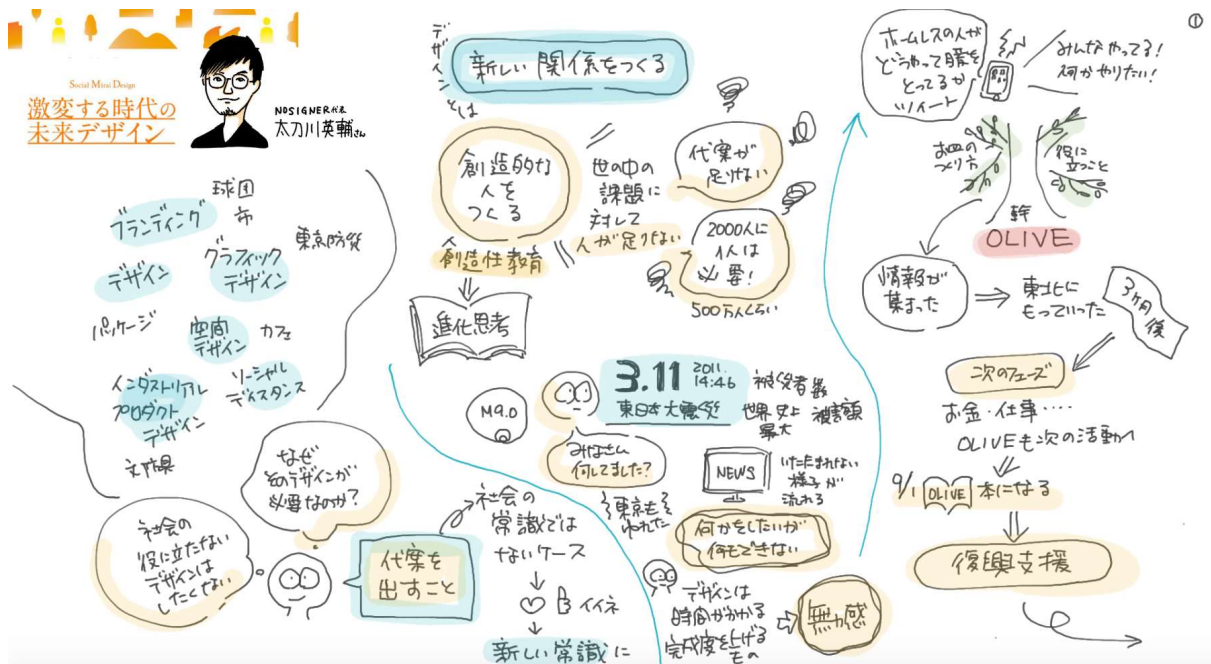 Social Mirai Design
激変する時代の
未来デザイン
NOSIGNER代表
太刀川英輔さん
球団
市
ブランディング
東京防災
グラフィック
デザイン
デザイン
パッケージ
空間
デザイン
カフェ
インダストリアル
プロダクト
デザイン
ソーシャル
ディスタンス
文房具
なぜ
そのデザインが
必要なのか?
社会の
役に立たない
デザインは
したくない
代案を
出すこと
社会の
常識では
ないケース
イイネ
新しい常識に
デザインとは
新しい関係をつくる
創造的な
人を
つくる
創造性教育
進化思考
世の中の
課題に
対して
人が足りない
代案が
足りない
2000人に
1人は
必要!
500万人くらい
M9.0
3.11 2011.
14:46
東日本大震災
被災者数
世界史上 被害額
最大
みなさん
何してました?
東京も
ゆれた
NEWS
いたたまれない
様子が
流れる
何かをしたいが
何もできない
デザインは
時間がかかる
完成度を上げる
もの
無力感
①
ホームレスの人が
どうやって暖を
とってるか
ツイート
みんなやってる!
何かやりたい!
お皿の
つくり方
役に
立つこと
幹
OLIVE
情報が
集まった
東北に
もっていった
3ヶ月
後
次のフェーズ
お金・仕事・・・・
OLIVEも次の活動へ
9/1 OLIVE 本になる
復興支援